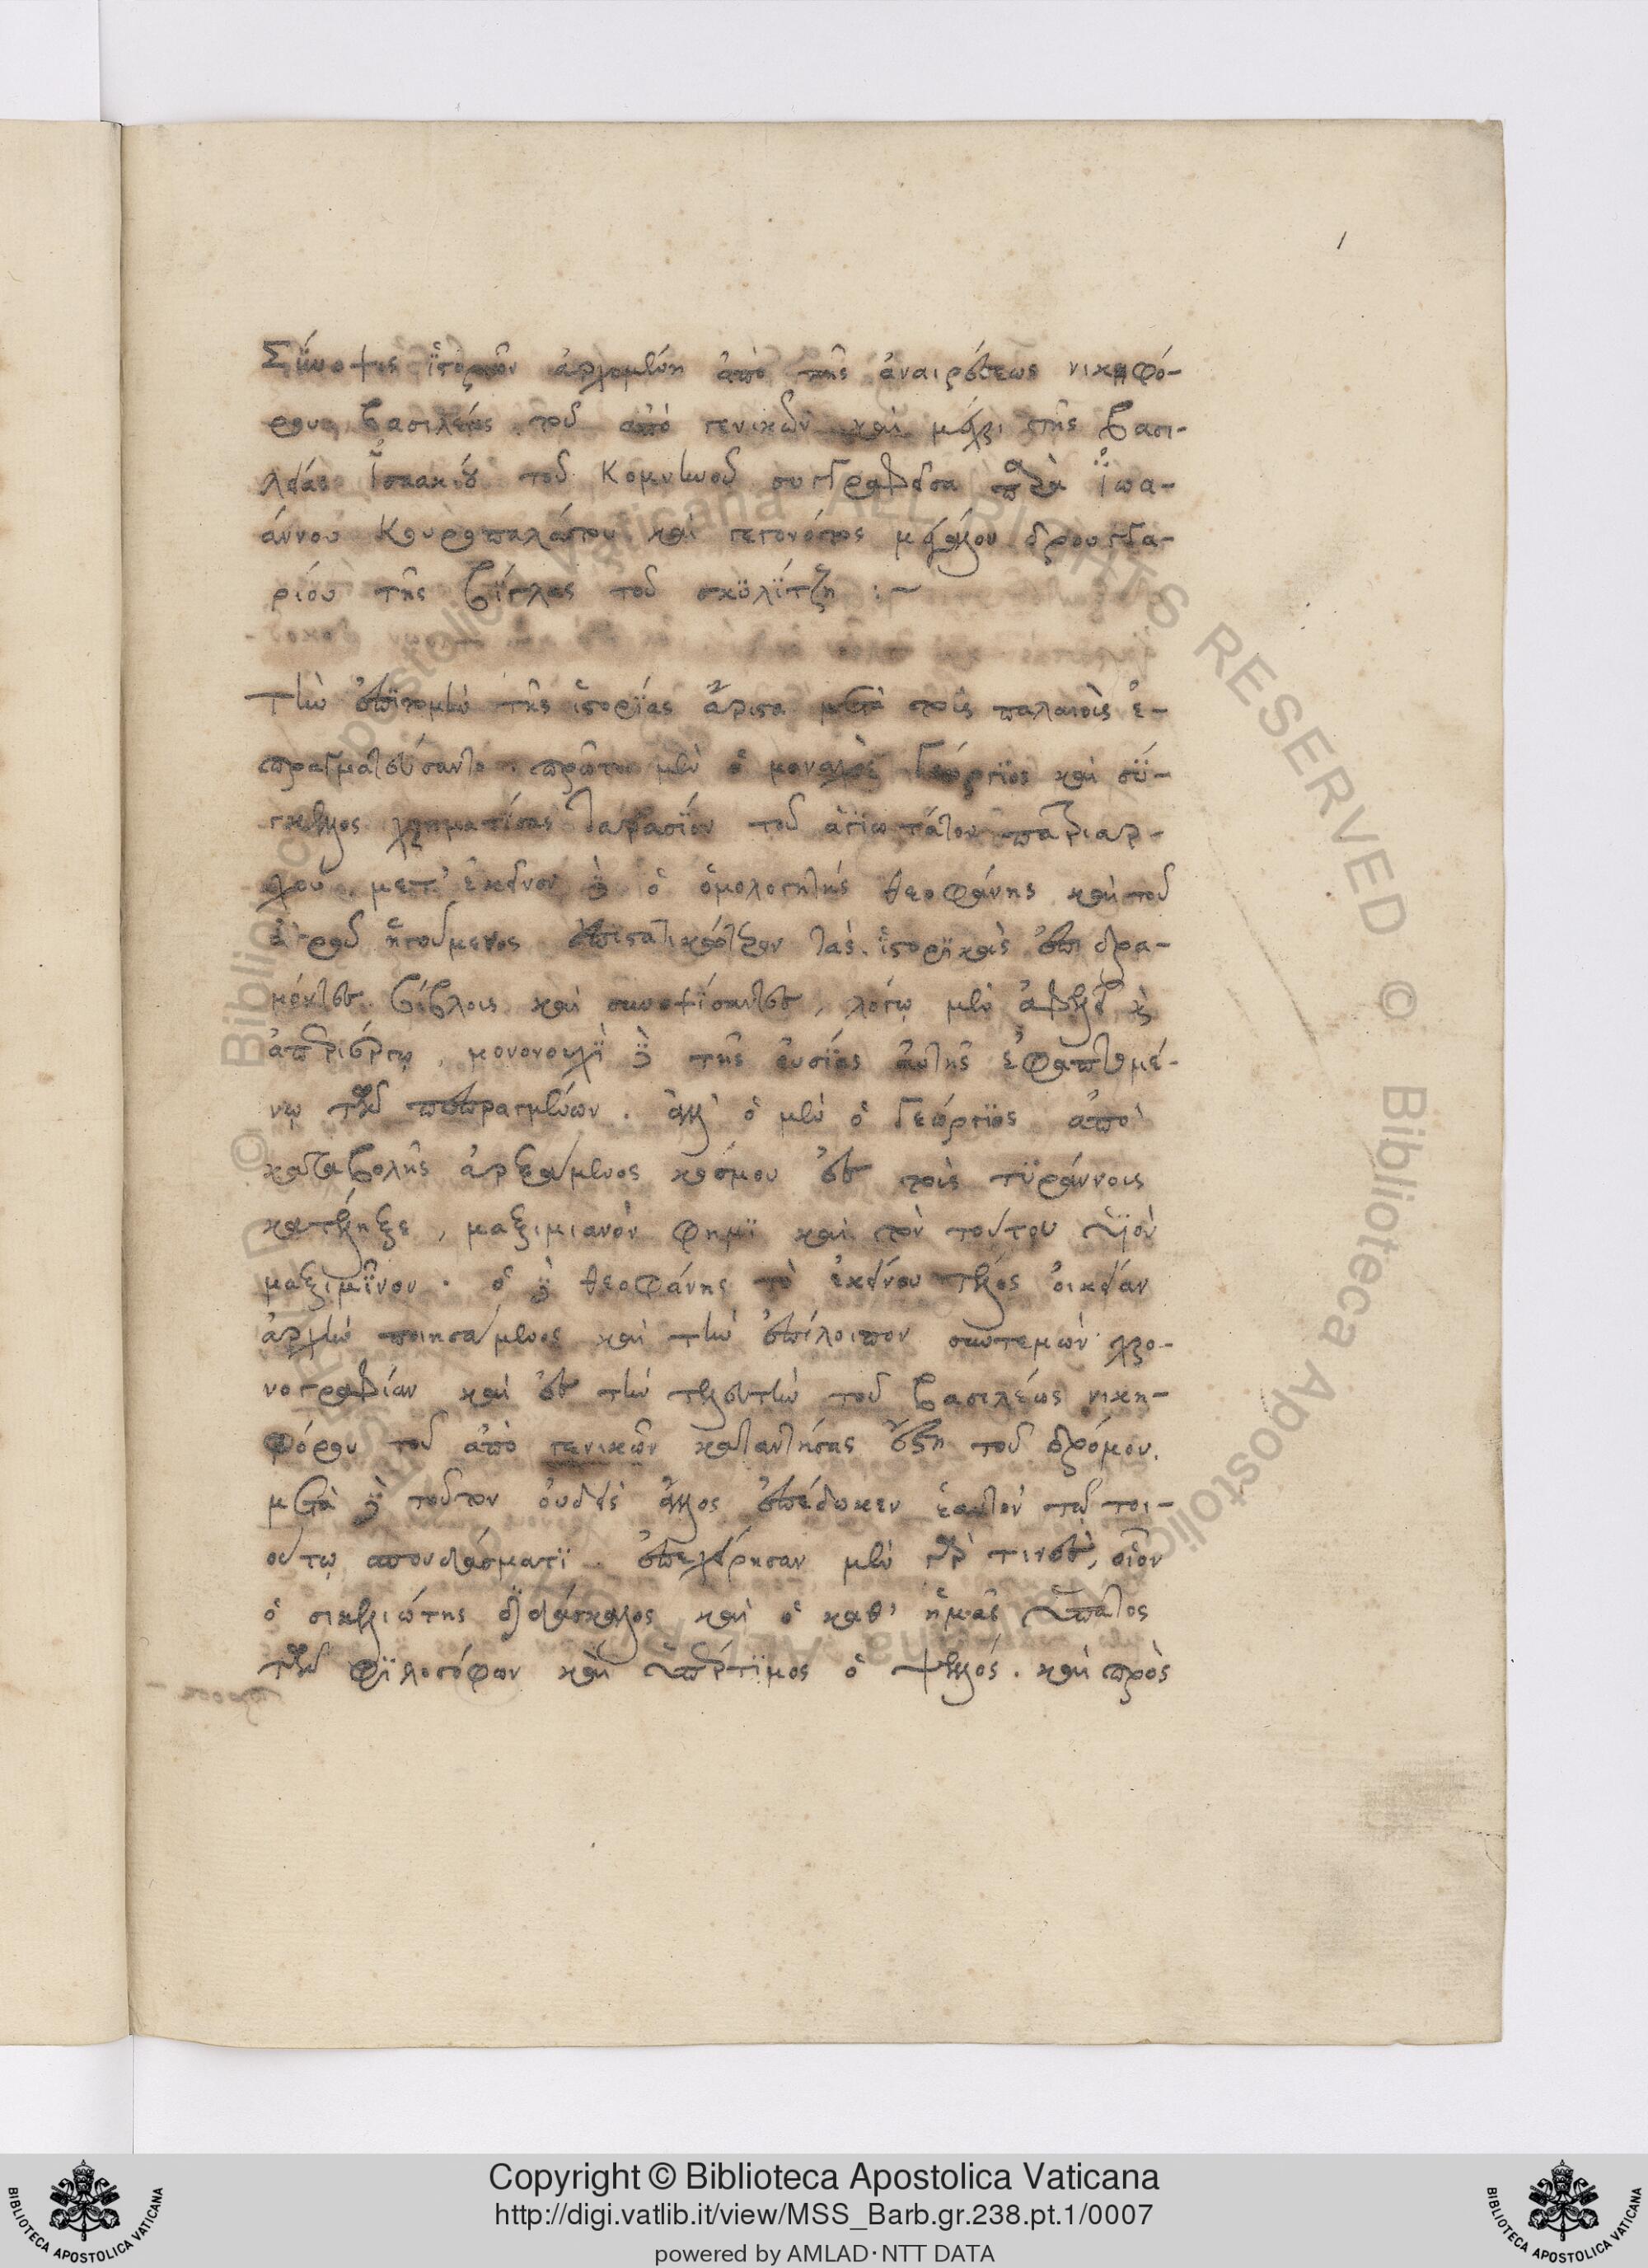 1
Σύνοψις ἱστοριῶν ἀρχομένη ἀπὸ τῆς ἀναιρέσεως νικηφό-
ρου βασιλέως τοῦ ἀπὸ γενικῶν καὶ μέχρι τῆς βασι-
λείας Ἰσαακίου τοῦ Κομνηνοῦ συγγραφεῖσα παρὰ Ἰωα-
άννου Κουροπαλάτου καὶ γεγονότος μεγάλου δρουγγα-
ρίου τῆς βίγλας τοῦ σκυλίτζη :~
Τὴν ἐπιτομὴν τῆς ἱστορίας ἄριστα μετὰ τοὺς παλαιοὺς ἐ-
πραγματεύσαντο. πρῶτον μὲν ὁ μοναχὸς Γεώργιος καὶ σύ-
γκελλος χρηματίσας ταρασίου τοῦ ἁγιωτάτου πατριάρ-
χου. μετ' ἐκεῖνον δὲ ὁ ὁμολογητὴς θεοφάνης καὶ τοῦ
ἀγροῦ ἡγούμενος ἐπιστατικώτερον τὰς ἱστορικὰς ἐπιδρα-
μόντες βίβλους καὶ συνοψίσαντες, λόγῳ μὲν ἀφελεῖ καὶ
ἀπεριέργῳ, μονονουχὶ δὲ τῆς οὐσίας αὐτῆς ἐφαπτομέ-
νῳ τῶν πεπραγμένων. ἀλλ' ὁ μὲν ὁ Γεώργιος ἀπὸ
καταβολῆς ἀρξάμενος κόσμου ἐς τοὺς τυράννους
κατέληξε, μαξιμιανὸν φημὶ καὶ τὸν τούτου υἱὸν
μαξιμῖνον. ὁ δὲ θεοφάνης τὸ ἐκείνου τέλος οἰκείαν
ἀρχὴν ποιησάμενος καὶ τὴν ἐπίλοιπον συντεμὼν χρο-
νογραφίαν καὶ ἐς τὴν τελευτὴν τοῦ βασιλέως νικη-
φόρου τοῦ ἀπὸ γενικῶν καταντήσας ἔστη τοῦ δρόμου.
μετὰ δὲ τοῦτον οὐδεὶς ἄλλος ἐπέδωκεν ἑαυτὸν τῷ τοι-
ούτῳ σπουδάσματι. ἐπεχείρησαν μὲν γὰρ τινες, οἷον
ὁ σικελιώτης διδάσκαλος καὶ ὁ καθ' ἡμᾶς ὕπατος
τῶν φιλοσόφων καὶ ὑπέρτιμος ὁ ψελλός. καὶ πρὸς
Copyright © Biblioteca Apostolica Vaticana
http://digi.vatlib.it/view/MSS_Barb.gr.238.pt.1/0007
powered by AMLAD·NTT DATA
BIBLIOTECA APOSTOLICA VATICANA
BIBLIOTECA APOSTOLICA VATICANA